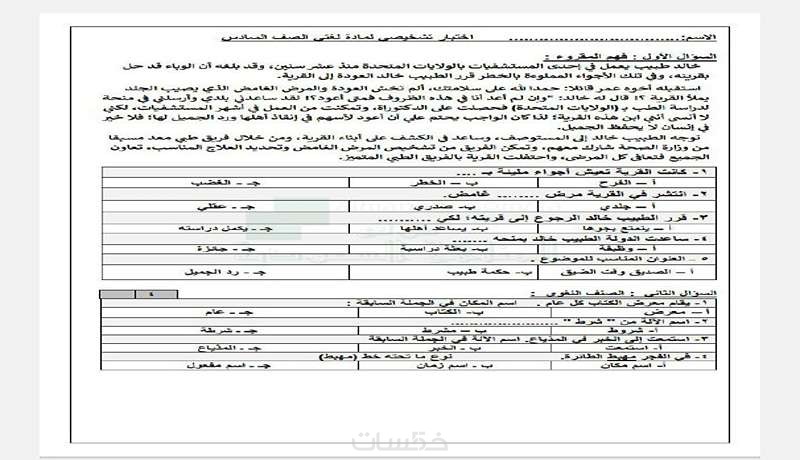 الاسم: ........................................ اختبار تشخيصي لمادة لغتي الصف السادس
السؤال الأول : فهم المقروء :
خالد طبيب يعمل في إحدى المستشفيات بالولايات المتحدة منذ عشر سنين، وقد بلغه أن الوباء قد حل
بقريته، وفي تلك الأجواء المملوءة بالخطر قرر الطبيب خالد العودة إلى القرية.
استقبله أخوه عمر قائلا: حمدا لله على سلامتك، ألم تخش العودة والمرض الغامض الذي يصيب الجلد
يملأ القرية ؟! قال له خالد: "وإن لم أعد أنا في هذه الظروف فمتى أعود؟! لقد ساعدني بلدي وأرسلني في منحة
لدراسة الطب بـ (الولايات المتحدة) فحصلت على الدكتوراة، وتمكنت من العمل في أشهر المستشفيات، لكني
لا أنسى أنني ابن هذه القرية؛ لذا كان الواجب يحتم علي أن أعود لأسهم في إنقاذ أهلها ورد الجميل لها؛ فلا خير
في إنسان لا يحفظ الجميل.
توجه الطبيب خالد إلى المستوصف، وساعد في الكشف على أبناء القرية، ومن خلال فريق طبي معد مسبقا
من وزارة الصحة شارك معهم، وتمكن الفريق من تشخيص المرض الغامض وتحديد العلاج المناسب، تعاون
الجميع فتعافى كل المرضى، واحتفلت القرية بالفريق الطبي المتميز.
١- كانت القرية تعيش أجواء مليئة بـ ....
أ – الفرح ب – الخطر جـ - الغضب
٢- انتشر في القرية مرض ........ غامض.
أ – جلدي ب- صدري جـ - عقلي
٣- قرر الطبيب خالد الرجوع إلى قريته؛ لكي ..........
أ – يتمتع بجوها ب- يساعد أهلها جـ - يكمل دراسته
٤- ساعدت الدولة الطبيب خالد بمنحه .......
أ – وظيفة ب- بعثة دراسية جـ - جائزة
٥ – العنوان المناسب للموضوع .
أ – الصديق وقت الضيق ب- حكمة طبيب جـ - رد الجميل
السؤال الثاني : الصنف اللغوي : ٤
١- يقام معرض الكتاب كل عام . اسم المكان في الجملة السابقة :
أ – معرض ب- الكتاب جـ - عام
٢- اسم الآلة من " شرط " ......................
أ- شروط ب – مشرط جـ - شرطة
٣- استمعت إلى الخبر في المذياع. اسم الآلة في الجملة السابقة
أ- استمعت ب – الخبر جـ - المذياع
٤- في الفجر مهبط الطائرة. نوع ما تحته خط (مهبط)
أ- اسم مكان ب – اسم زمان جـ - اسم مفعول
خمسات